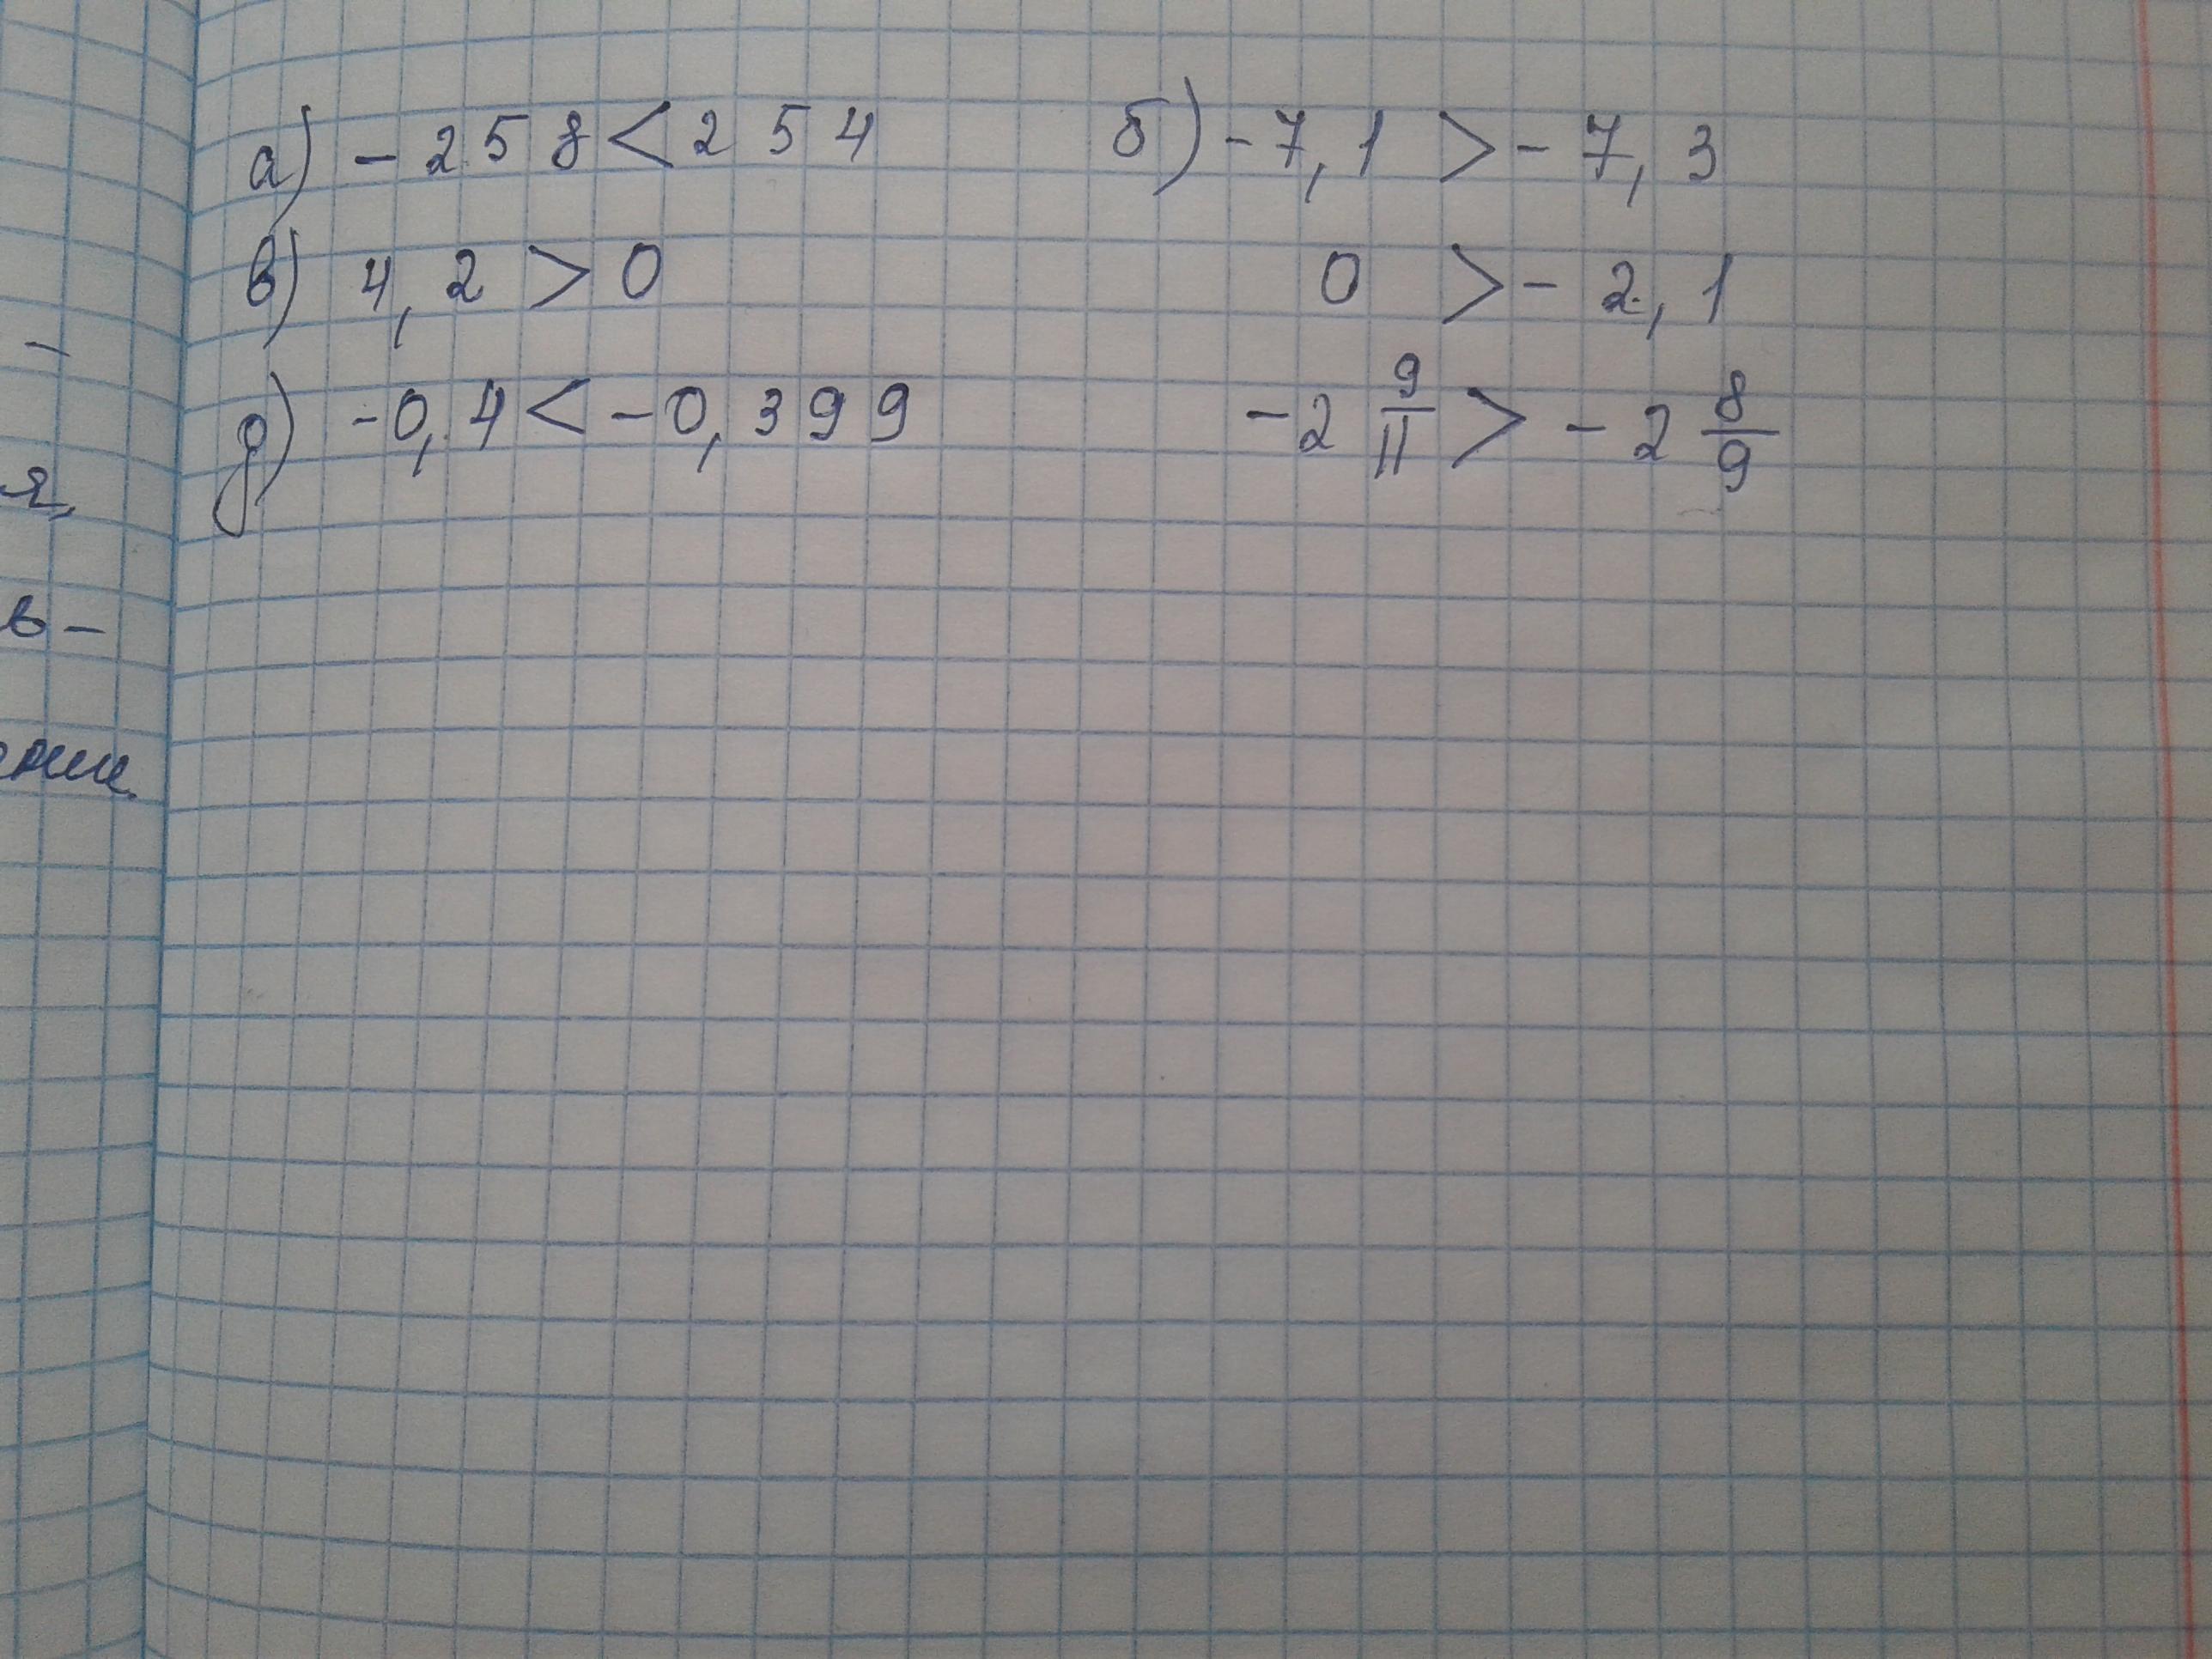 а) - 258 < 254 б) -7,1 > - 7,3
в) 4,2 > 0 0 > - 2,1
д) -0,4 < -0,399 -2 9/11 > - 2 8/9
-
я,
в -